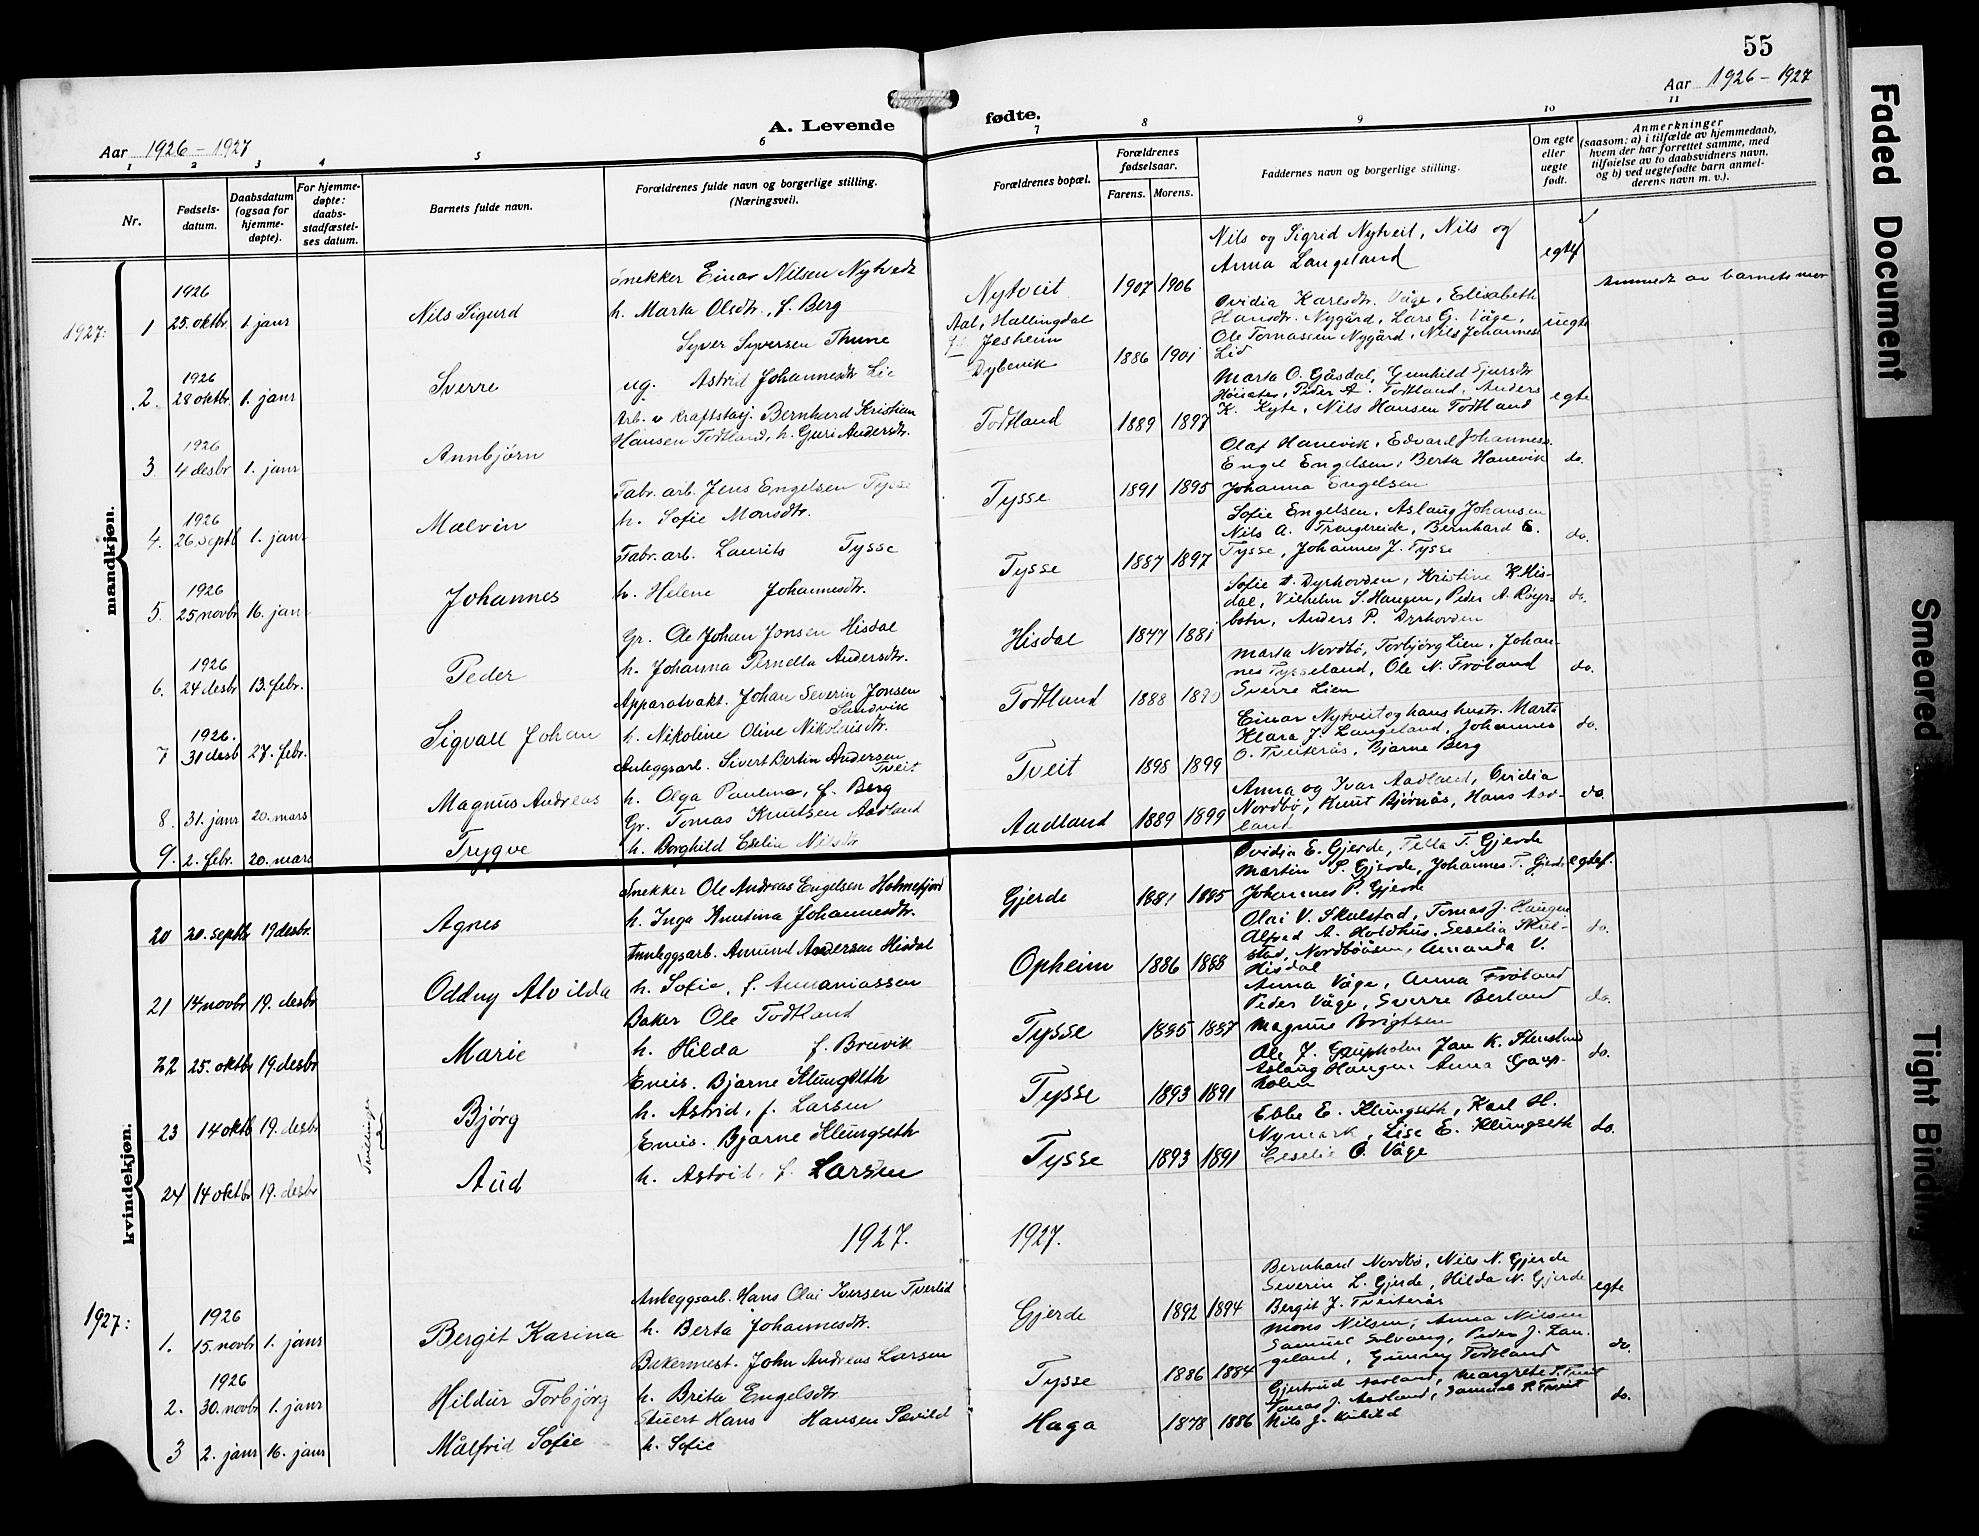 55
Aar 1926 - 1927
Aar 1926 - 1927
A. Levende fødte.
1 2 3 4 5 6 7 8 9 10 11
Nr.
Fødsels-
datum.
Daabsdatum
(ogsaa for
hjemme-
døpte).
For hjemme-
døpte:
daabs-
stadfæstel-
ses datum.
Barnets fulde navn.
Forældrenes fulde navn og borgerlige stilling.
(Næringsvei).
Forældrenes bopæl.
Forældrenes
fødselsaar.
Farens. Morens.
Faddernes navn og borgerlige stilling.
Om egte
eller
uegte
født.
Anmerkninger
(saasom: a) i tilfælde av hjemmedaab,
hvem der har forrettet samme, med
tilføielse av to daabsvidners navn,
og b) ved uegtefødte barn anmel-
derens navn m. v.).
mandkjøn.
1927:
1926
1 25. oktbr. 1. janr Nils Sigurd
Snekker Einar Nilsen Nytveit
h. Marta Olsdtr., f. Berg
Nytveit 1907 1906
Nils og Sigrid Nytveit, Nils og
Anna Langeland
egtef
1926
2. 28 oktbr. 1. janr Sverre
Syver Syversen Thune
ug. Astrid Johannesdtr Lie
Aal, Hallingdal
Jesheim
Dybevik 1886 1901
Ovidia Karlsdtr. Våge, Elisabeth
Hansdtr. Nygård, Lars G. Våge,
Ole Tomassen Nygård, Nils Johannes
Lid
uegte
Anmeldt av barnets mor
1926
3. 4 desbr 1. janr Annbjørn
Arb. v kraftstasj. Bernhard Kristian
Hansen Todtland, h. Guri Andersdtr.
Todtland 1889 1897
Marta O. Gåsdal, Gunhild
Peder A. Todtland, Anders
K. Kyte, Nils Hansen Todtland
egte
1926
4. 26. septbr 1. janr Malvin
Fabr. arb. Jens Engelsen Tysse
h. Sofie Monsdtr.
Tysse 1891 1895
Olaf Hanevik, Edvard Johanness.
Engel Engelsen, Berta Hanevik
Johanna Engelsen
do.
1926
5. 25 novbr 16. janr Johannes
Fabr. arb. Laurits Tysse
h. Helene Johannesdtr.
Tysse 1887 1897
Sofie Engelsen, Aslaug Johansen
Nils A. Trengereide, Bernhard E.
Tysse, Johannes J. Tysse
do.
1926
6. 24 desbr 13. febr. Peder
Gr. Ole Johan Jonsen Hisdal
h. Johanna Pernella Andersdtr.
Hisdal 1877 1881
Sofie A. Dyrhovden, Kristine K. His-
dal, Vilhelm S. Haugen, Peder A. Røyr-
botn, Anders P. Dyrhovden
do.
1926.
7 31 desb 27. febr. Sigvall Johan
Apparatvakt. Johan Severin Jonsen
Sandvik
h. Nikoline Oline Nikolaisdtr.
Todtland 1888
Marta Nordbø, Torbjørg Lien, Johan-
nes Tysseland, Ole N. Frøland
Sverre Lien
do.
8. 31. janr 20. mars Magnus Andreas
Anleggsarb. Sivert Bertin Andersen
Tveit
h. Olga Pauline, f. Berg
Tveit 1898 1899
Einar Nytveit og hans hustr. Marta
Klara J. Langeland, Johannes
O. Tveiterås, Bjarne Berg
do.
9. 2. febr. 20. mars Trygve
Gr. Tomas Knutsen Aadland
h. Borghild Eselin Nilsdtr
Aadland 1889 1899
Anna og Ivar Aadland, Ovidia
Nordbø, Knut Bjørnås, Hans Aad-
land
do.
kvindekjøn.
20 20. septbr 19 desbr. Agnes
Snekker Ole Andreas Engelsen Holmefjord
h. Inga Knutina Johannesdtr.
Gjerde 1881 1885
Ovidia E. Gjerde, Tella T. Gjerde
Martin S. Gjerde, Johannes T. Gjerde
Johannes P. Gjerde
egtef.
21 14 novbr 19. desbr Oddny Alvilda
Anleggsarb. Amund Andersen Hisdal
h. Sofie, f. Annaniassen
Opheim 1886 1888
Olai V. Skulstad, Tomas J. Haugen
Alfred A. Holdhus, Seselia Skul-
stad, Nordbøåsen, Amanda V.
Hisdal
do.
22 25. oktbr 19. desbr Marie
Baker Ole Todtland
h. Hilda f. Bruvik
Tysse 1885 1887
Anna Våge, Anna Frøland
Peder Våge, Sverre Berland
Magnus Brigtsen
do.
Tvillinger
23 14 oktb 19. desbr Bjørg
Emis. Bjarne Klungseth
h. Astrid, f. Larsen
Tysse 1893 1891
Ole J. Gaupholm Jan K. Stensland
Aslaug Haugen Anna Gaup-
holm
do.
24 14 oktbr 19. desbr Aud
Emis. Bjarne Klungseth
h. Astrid, f. Larsen
Tysse 1893 1891
Ebbe E. Klungseth, Karl H.
Nymark, Lise E. Klungseth
Seselie O. Våge
do.
1927. 1927.
1927:
1926
1. 15. novbr 1. janr Bergit Karina
Anleggsarb. Hans Olai Iversen Tverlid
h. Berta Johannesdtr.
Gjerde 1892 1894
Bernhard Nordbø, Nils N. Gjerde
Severin L. Gjerde, Hilda N. Gjerde
Bergit J. Tveiterås
egte
1926
2. 30. novbr 1. janr Hildur Torbjørg
Bakermest. John Andreas Larsen
h. Brita Engelsdtr
Tysse 1886 1884
Mons Nilsen, Anna Nilsen
Samuel Solvang, Peder J. Lan-
geland, Gunny Todtland
do.
3 2. janr 16. janr Målfrid Sofie
Stuert Hans Hansen Sævild
h. Sofie
Haga 1878 1886
Gjertrud Aarland, Margrete S. Tveit
Tomas J. Aadland, Samuel P. Tveit
Nils J.
do.
Faded Document
Smeared
Tight Binding